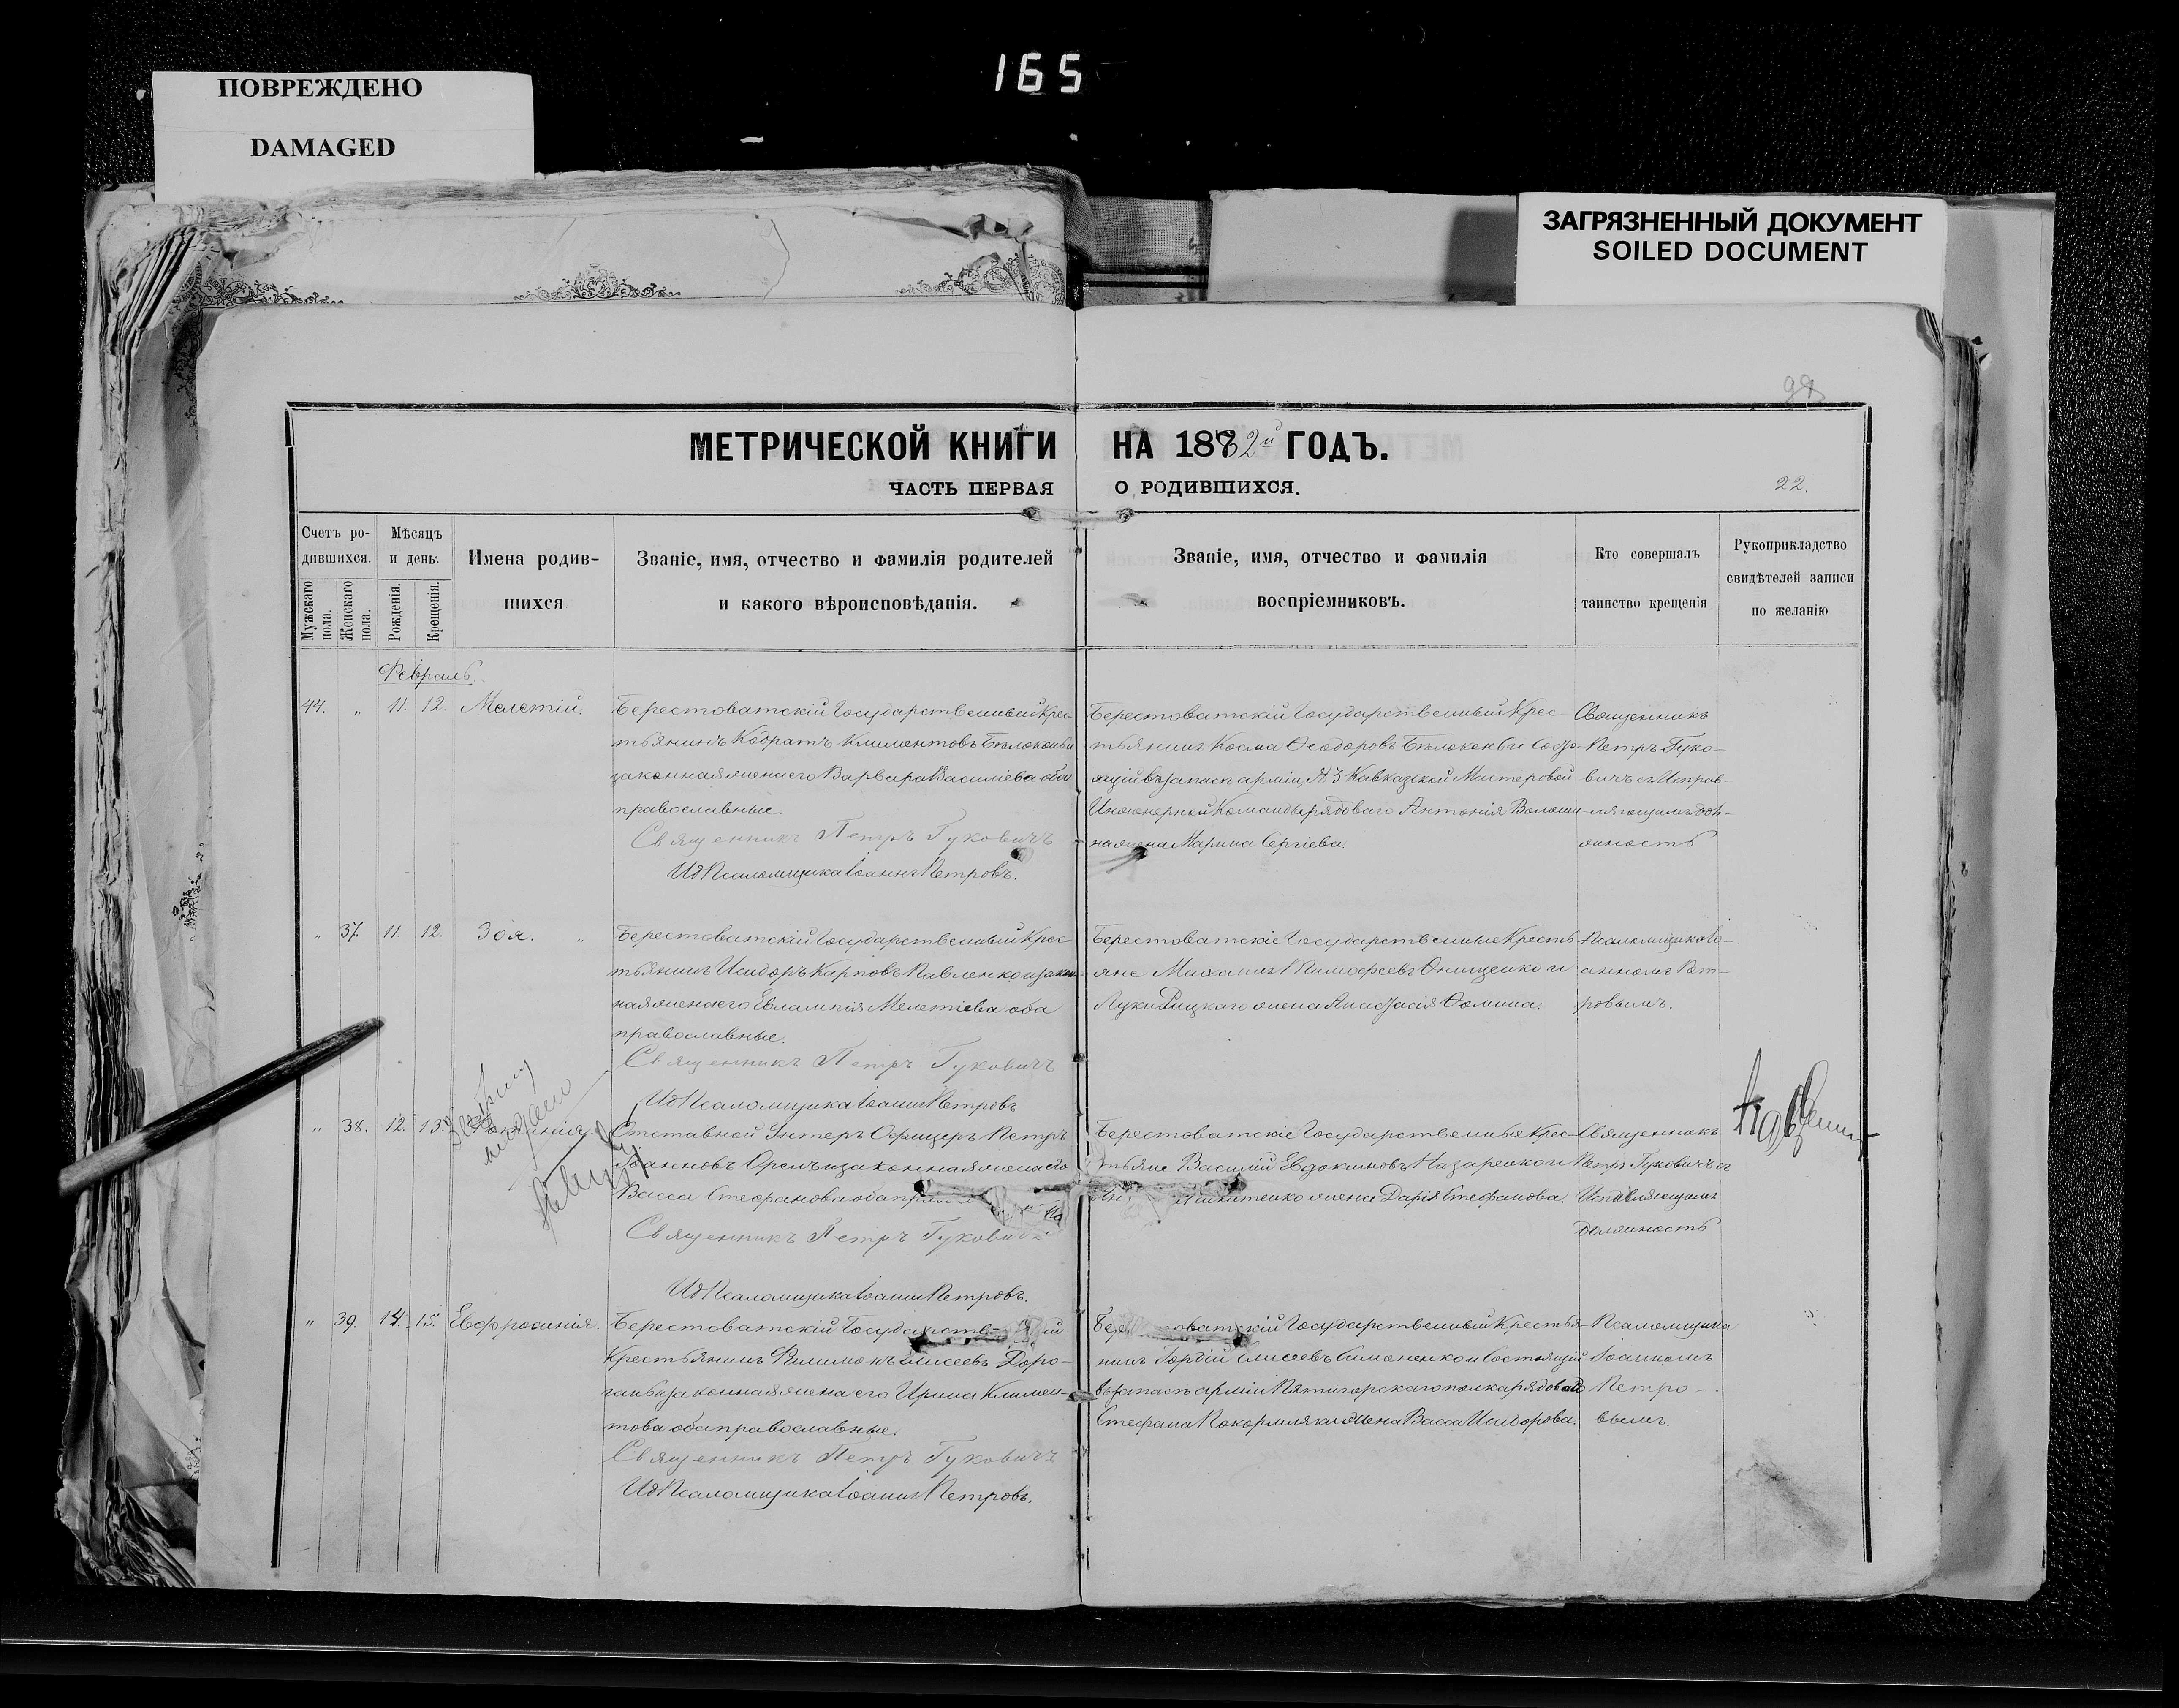 165
ПОВРЕЖДЕНО
DAMAGED
ЗАГРЯЗНЕННЫЙ ДОКУМЕНТ
SOILED DOCUMENT
МЕТРИЧЕСКОЙ КНИГИ НА 1882й ГОДЪ.
ЧАСТЬ ПЕРВАЯ О РОДИВШИХСЯ.
22.
Счетъ ро-
дившихся.
Мужскаго пола.
Женскаго пола.
Мѣсяцъ
и день.
Рожденія.
Крещенія.
Имена родив-
шихся
Званіе, имя, отчество и фамилія родителей
и какого вѣроисповѣданія.
Званіе, имя, отчество и фамилія
воспріемниковъ.
Кто совершалъ
таинство крещенія
Рукоприкладство
свидѣтелей записи
по желанію
Февраль.
44. „ 11. 12. Мелетій.
Берестоватскій Государственный Крес-
тьянинъ Кодратъ Климентовъ Бѣлоконь и
законная жена его Варвара Василіева оба
православные.
Священникъ Петръ Гуковичъ
ИдПсаломщика Іоаннъ Петровъ.
Берестоватскій Государственный Крес-
тьянинъ Косма Ѳеодоровъ Бѣлоконь и Состо-
ящій въ запасѣ арміи, № 3 Кавказской Мастеровой
Инженерной Команды рядоваго Антонія Волоши-
на жена Марина Сергіева.
Священникъ
Петръ Гуко-
вичъ съ Исправ-
ляющимъ дол-
жность
„ 37. 11. 12. Зоя. „
Берестоватскій Государственный Крес-
тьянинъ Исидоръ Карповъ Павленко и закон-
ная жена его Евлампія Мелетіева оба
православные.
Священникъ Петръ Гуковичъ
ИдПсаломщика Іоаннъ Петровъ
Берестоватскіе Государственные Кресть-
яне Михаилъ Тимофеевъ Онищенко и
Луки Рицкаго жена Анастасія Ѳомина.
Псаломщика Іо-
анномъ Пет-
ровымъ.
„ 38. 12. 13.
Отставной Унтеръ Офицеръ Петръ
Іоанновъ Орелъ и законная жена его
Васса Стефанова оба
Священникъ Петръ Гуковичъ
ИдПсаломщика Іоаннъ Петровъ.
Берестоватскіе Государственные Крес-
тьяне Василій Евдокимовъ Назаренко и
жена Дарія Стефанова.
Священникъ
Петръ Гуковичъ съ
Исправляющимъ
должность
„ 39. 14. 15. Евфросинія.
Берестоватскій Государственный
Крестьянинъ Филимонъ Елисеевъ Доро-
гань и законная жена его Ирина Климен-
това оба православные.
Священникъ Петръ Гуковичъ
ИдПсаломщика Іоаннъ Петровъ.
Берестоватскій Государственный Крестья-
нинъ Гордій Елисеевъ Симоненко и Состоящій
въ запасѣ арміи Пятигорскаго полка рядового
Стефана Покормляка жена Васса Исидорова.
Псаломщика
Іоанномъ
Петро-
вымъ.